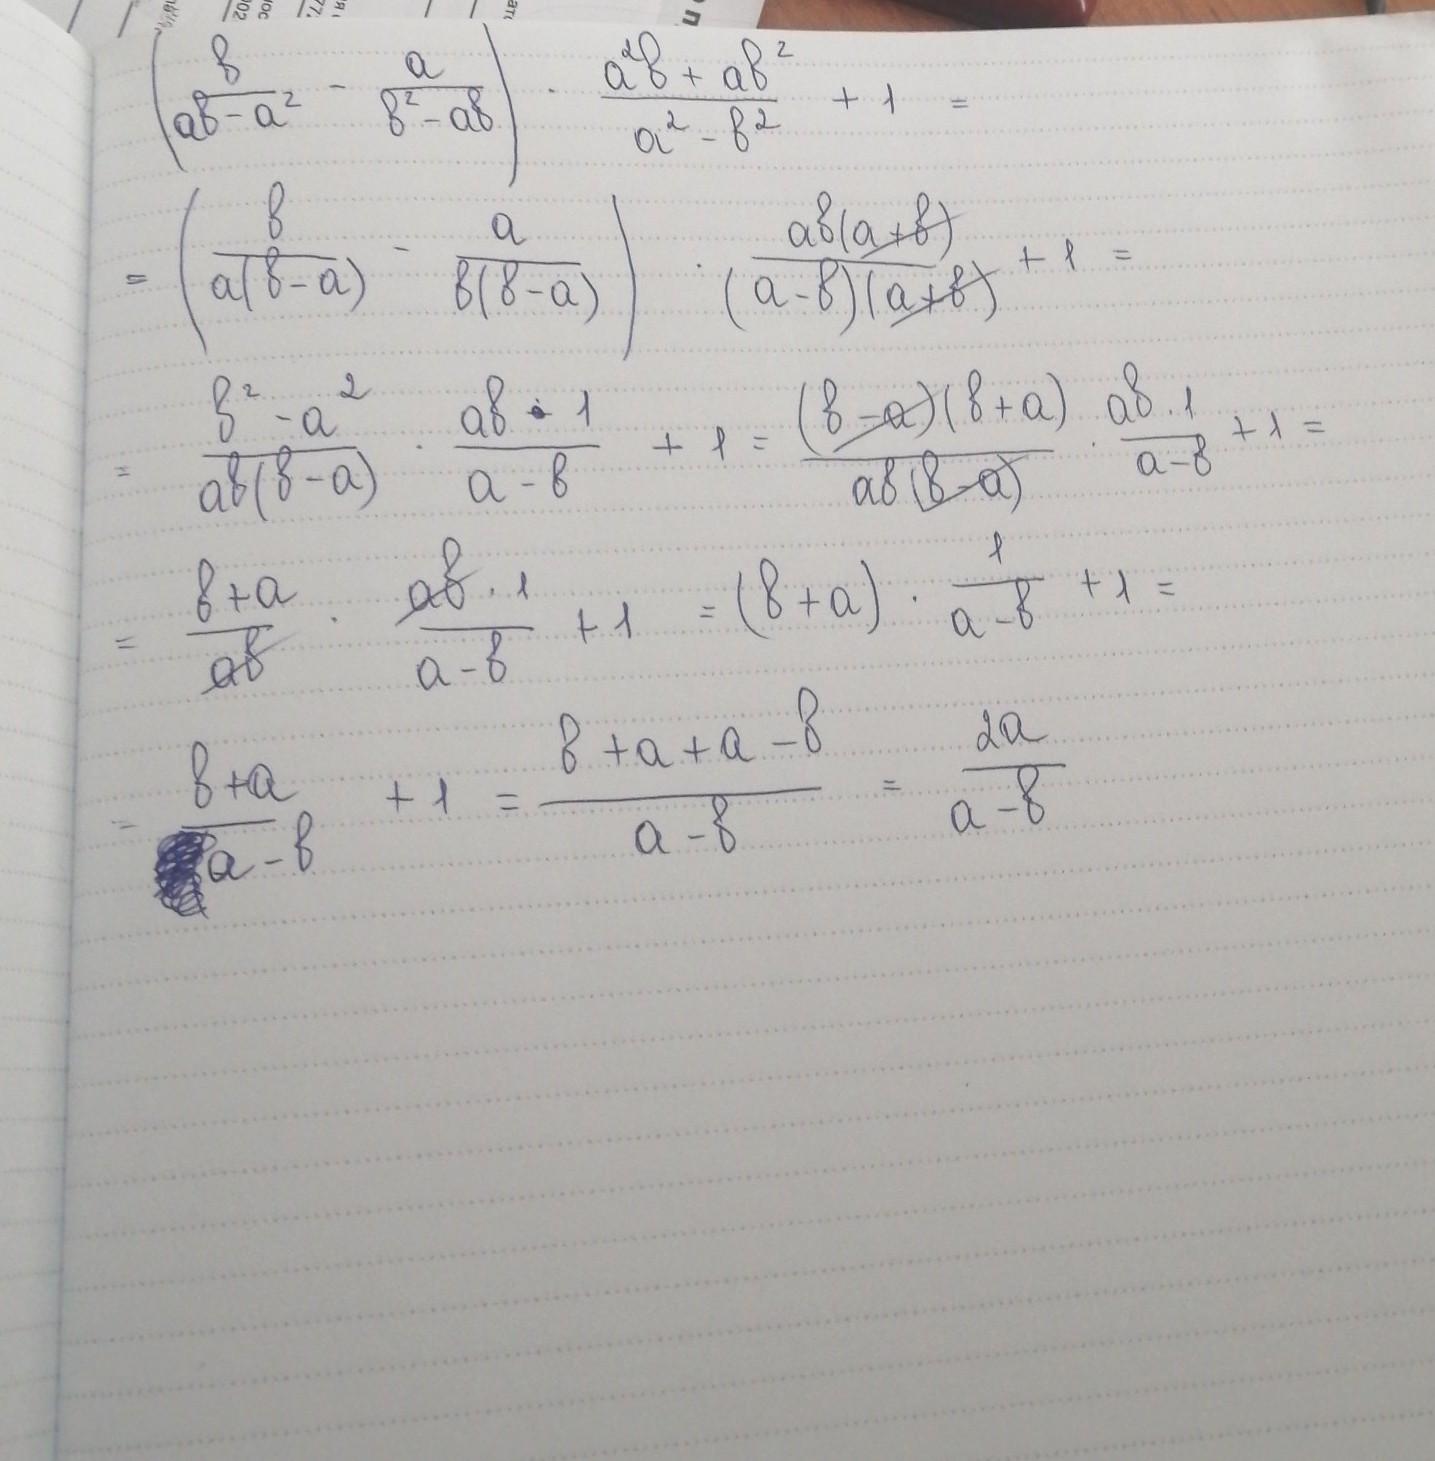 (b/(ab-a²) - a/(b²-ab)) · (a²b+ab²)/(a²-b²) + 1 =
= (b/(a(b-a)) - a/(b(b-a))) · ab(a+b)/((a-b)(a+b)) + 1 =
= (b²-a²)/(ab(b-a)) · (ab·1)/(a-b) + 1 = ((b-a)(b+a))/(ab(b-a)) · (ab·1)/(a-b) + 1 =
= (b+a)/(ab) · (ab·1)/(a-b) + 1 = (b+a) · 1/(a-b) + 1 =
= (b+a)/(a-b) + 1 = (b+a+a-b)/(a-b) = 2a/(a-b)